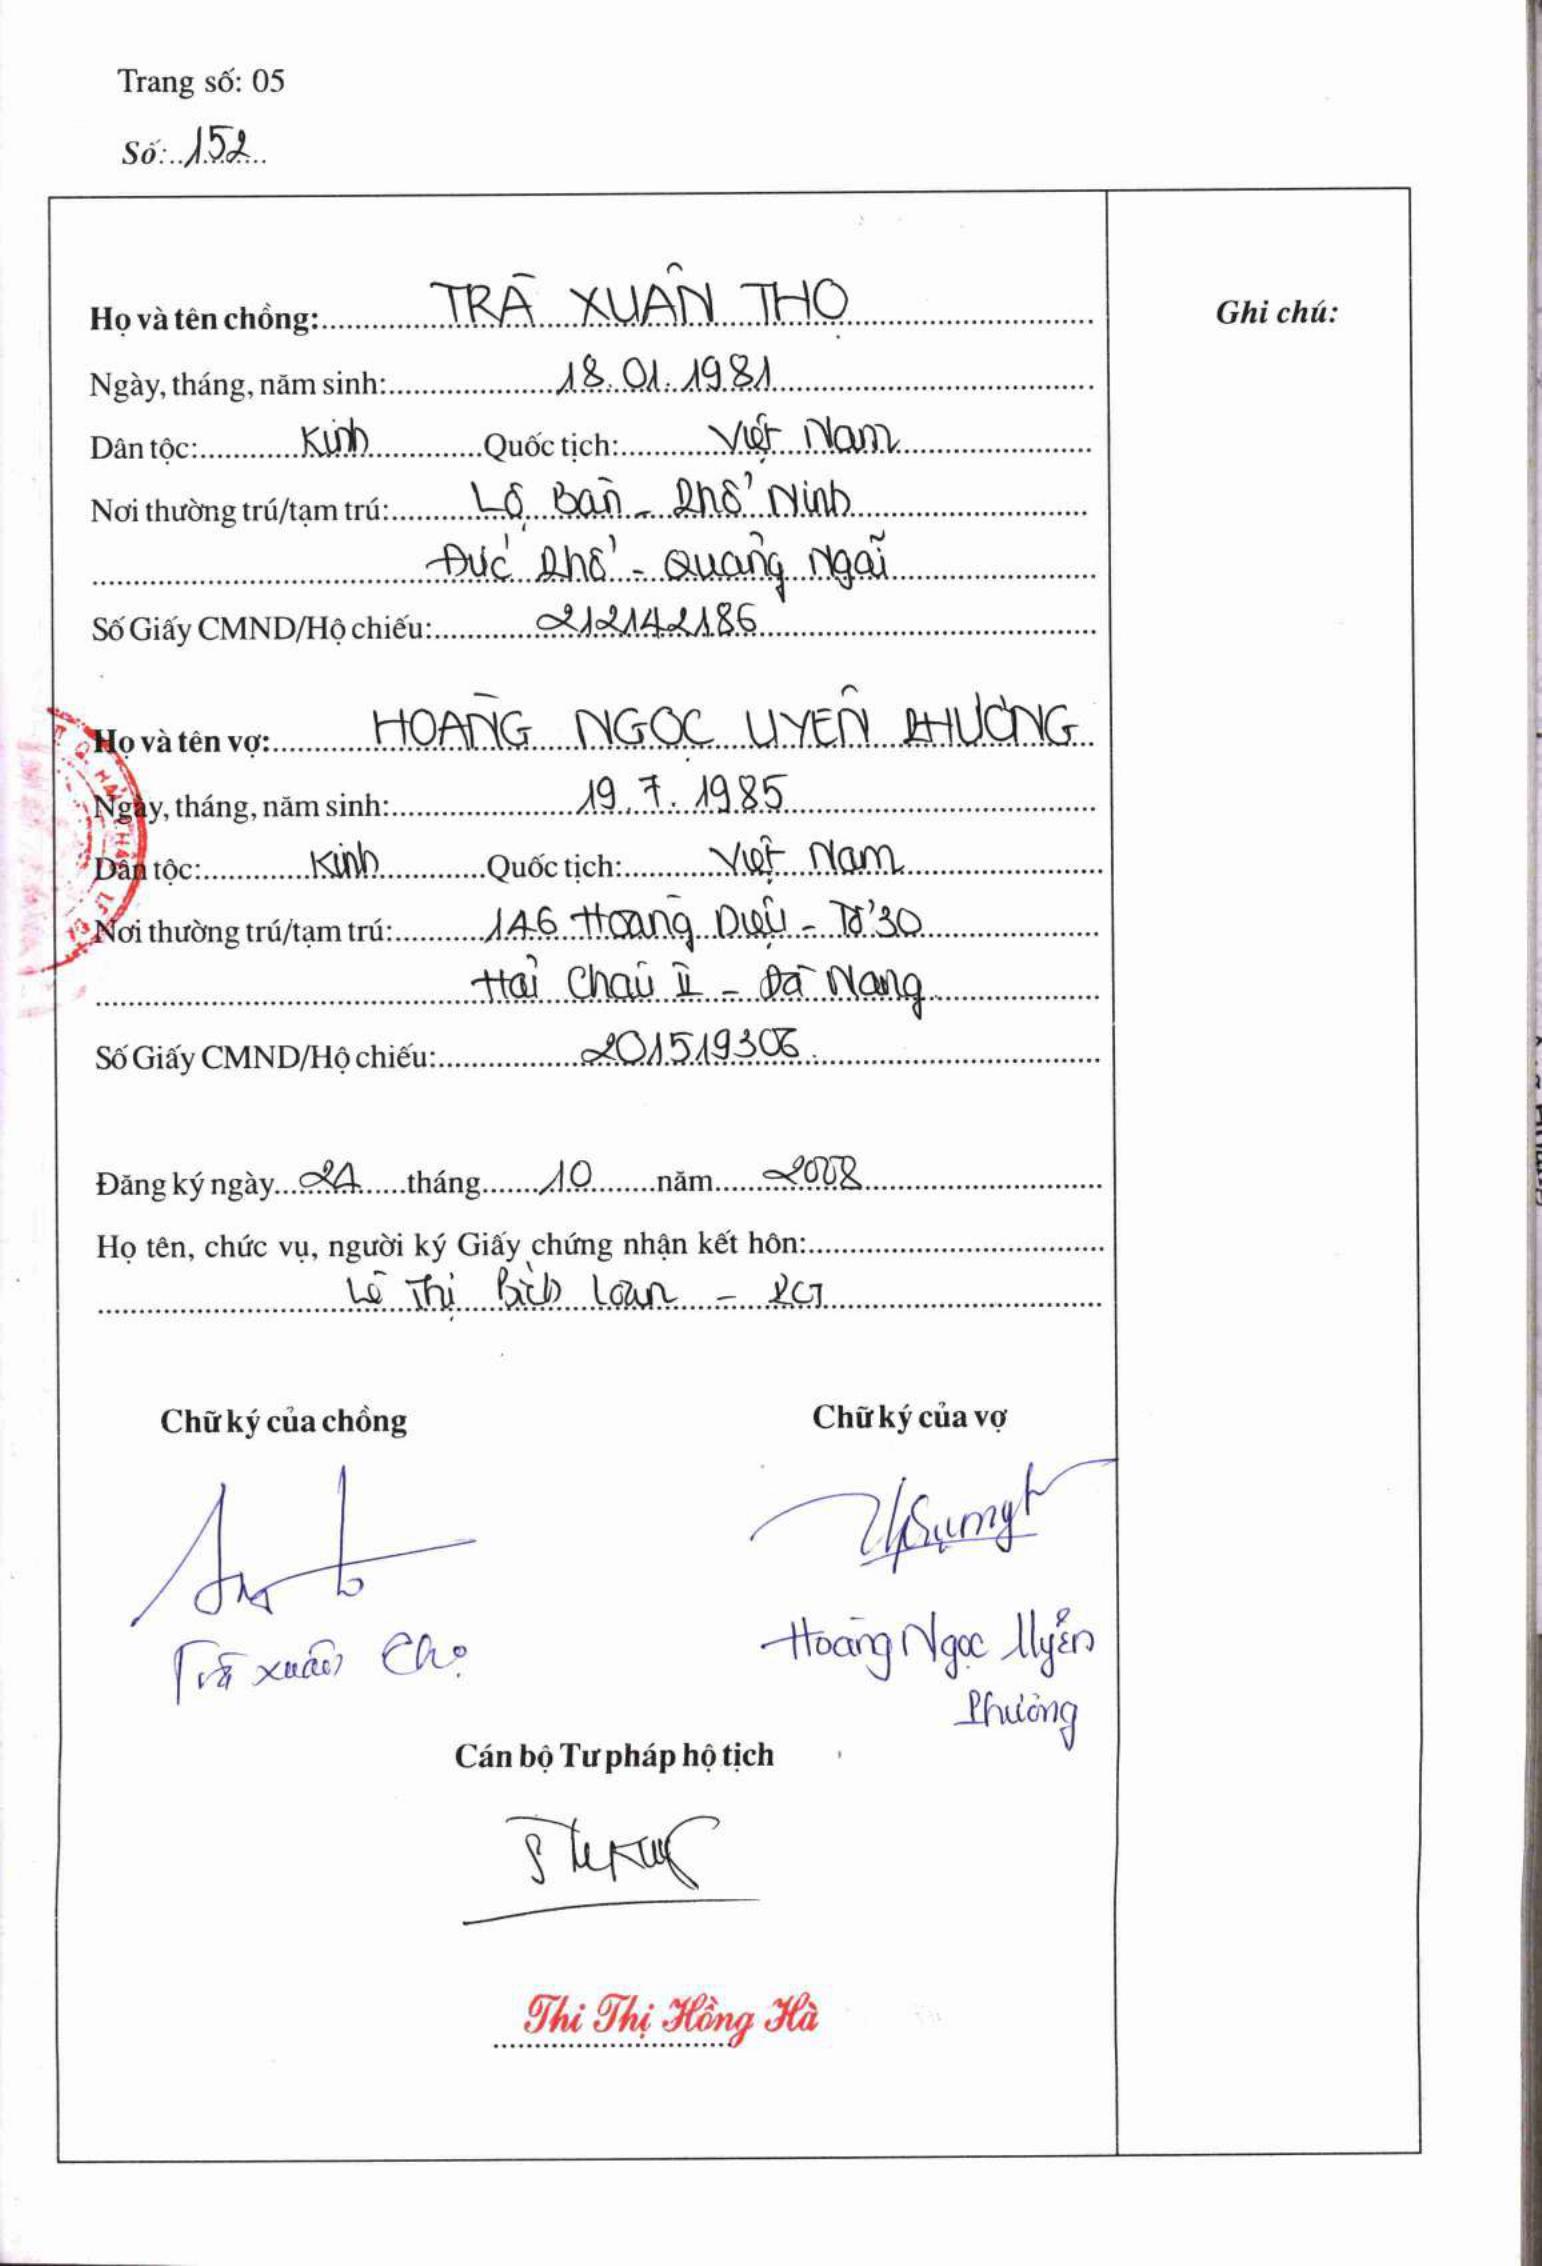 Trang số: 05
Số: 152
Họ và tên chồng: TRÀ XUÂN THỌ
Ghi chú:
Ngày, tháng, năm sinh: 18.01.1981
Dân tộc: Kinh Quốc tịch: Việt Nam
Nơi thường trú/tạm trú: Lộ Bàn - Phổ Ninh
Đức Phổ - Quảng Ngãi
Số Giấy CMND/Hộ chiếu: 212142186
Họ và tên vợ: HOÀNG NGỌC UYÊN PHƯƠNG
Ngày, tháng, năm sinh: 19.7.1985
Dân tộc: Kinh Quốc tịch: Việt Nam
Nơi thường trú/tạm trú: 146 Hoàng Diệu - Tổ 30
Hải Châu II - Đà Nẵng
Số Giấy CMND/Hộ chiếu: 201519306
Đăng ký ngày 24 tháng 10 năm 2008
Họ tên, chức vụ, người ký Giấy chứng nhận kết hôn:
Lê Thị Bích Loan - PCT
Chữ ký của chồng Chữ ký của vợ
Trà Xuân Thọ
Hoàng Ngọc Uyên
Phương
Cán bộ Tư pháp hộ tịch
Thi Thị Hồng Hà